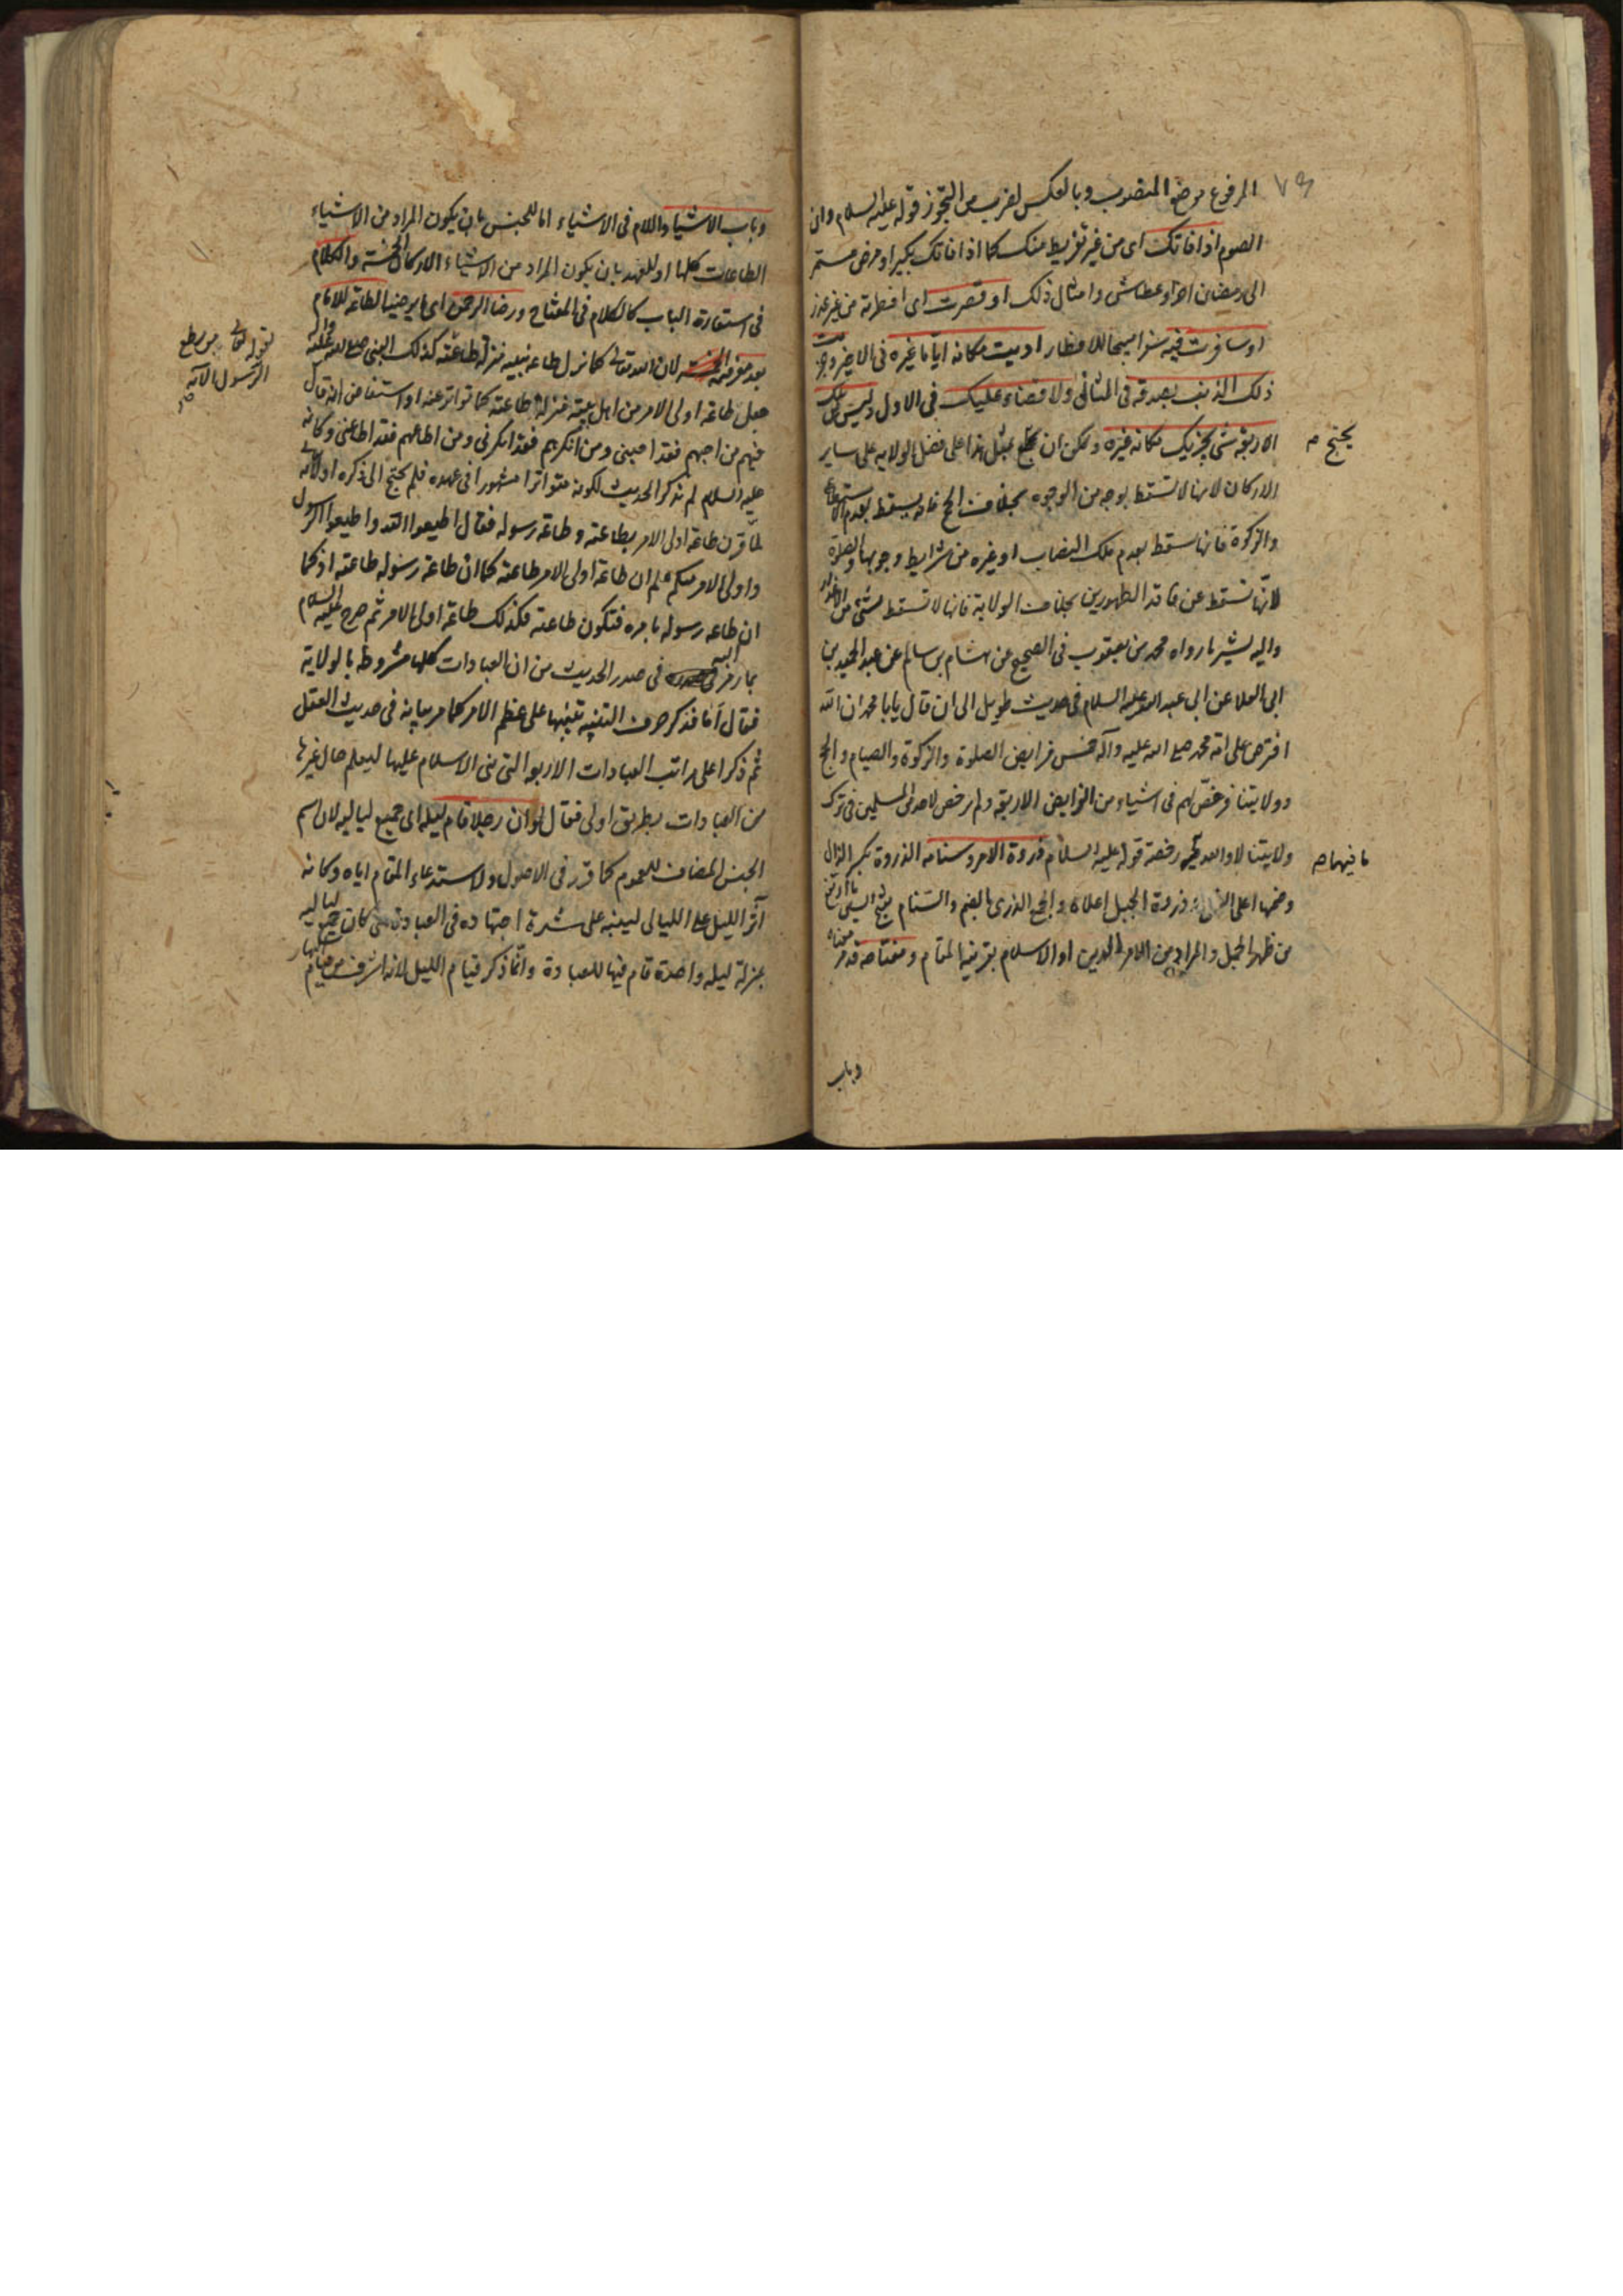 المرفوع موضع المنصوب وبالعكس لضرب من التجوز قوله عليه السلام وان
الصوم اذا فاتك اى من غير تفريط منك كما اذا فاتك بكبر او مرض مستمر
الى رمضان اخر او عطاش وامثال ذلك او قصرت اى افطرته من غير عذر
او سافرت فيه سفرا مبيحا للافطار اديت مكانه اياما غيره فى الاخيرين وجبرت
ذلك الذنب بصدقه فى الثانى ولا قضاء عليك فى الاول وليس من تلك
الاربعة شى يجزيك مكانه غيره ويمكن ان يحتج بمثل هذا على فضل الولايه على ساير
يحتج م
الاركان لانها لا تسقط بوجه من الوجوه بخلاف الحج فانه يسقط بعدم الاستطاعة
والزكوة فانها تسقط بعدم ملك النصاب او غيره من شرايط وجوبها والصلوة
لانها تسقط عن فاقد الطهورين بخلاف الولاية فانها لا تسقط بشئ من الاعذار
واليه يشير ما رواه محمد بن يعقوب فى الصحيح عن هشام بن سالم عن عبد الحميد بن
ابى العلا عن ابى عبد الله عليه السلام فى حديث طويل الى ان قال يا با محمد ان الله
افترض على امة محمد صلى الله عليه وآله خمس فرايض الصلوة والزكوة والصيام والحج
وولايتنا فرخص لهم فى اشياء من الفرايض الاربعة ولم يرخص لاحد من المسلمين فى ترك
ولايتنا لا والله ما فيها رخصة قوله عليه السلام ذروة الامر وسنامه الذروة بكسر الذال
ما فيها ص
وضمها اعلى الشئ وذروة الجبل اعلاه والجمع الذرى بالضم والسنام بفتح السين ما ارتفع
من ظهر الجمل والمراد من الامر الدين او الاسلام بقرينة المقام ومفتاحه قد مر معناه
وباب
وباب الاشياء واللام فى الاشياء اما للجنس بان يكون المراد من الاشياء
الطاعات كلها او للعهد بان يكون المراد من الاشياء الاركان الخمسة والكلام
فى استعارة الباب كالكلام فى المفتاح ورضا الرحمن اى ما يرضيه الطاعة للامام
بعد معرفته لان الله تعالى كما نزل طاعة نبيه منزلة طاعته كذلك النبى صلى الله عليه وآله
بقوله تعالى من يطع
الرسول الآية
جعل طاعة اولى الامر من اهل بيته بمنزلة طاعته كما تواتر عنه واستفاض انه قال
فيهم من احبهم فقد احبنى ومن انكرهم فقد انكرنى ومن اطاعهم فقد اطاعنى وكانه
عليه السلام لم يذكر الحديث لكونه متواترا مشهورا فى عهده فلم يحتج الى ذكره او لانه تعالى
لما قرن طاعة اولى الامر بطاعته وطاعة رسوله فقال اطيعوا الله واطيعوا الرسول
واولى الامر منكم علم ان طاعة اولى الامر طاعته كما ان طاعة رسوله طاعته اذ كما
ان طاعه رسوله بامره فتكون طاعته فكذلك طاعة اولى الامر ثم صرح عليه السلام
بما رمز اليه فى صدر الحديث من ان العبادات كلها مشروطه بالولاية
فقال اما فذكر حرف التنبيه تنبيها على عظم الامر كما مر بيانه فى حديث العقل
ثم ذكر اعلى مراتب العبادات الاربع التى بنى الاسلام عليها ليعلم حال غيرها
من العبادات بطريق اولى فقال لو ان رجلا قام ليله اى جميع لياليه لان اسم
الجنس المضاف للعموم كما قرر فى الاصول ولاستدعاء المقام اياه وكانه
آثر الليل على الليالى لينبه على شدة اجتهاده فى العبادة حتى كان جميع لياليه
بمنزلة ليله واحدة قام فيها للعبادة وانما ذكر قيام الليل لانه اشرف من قيام النهار